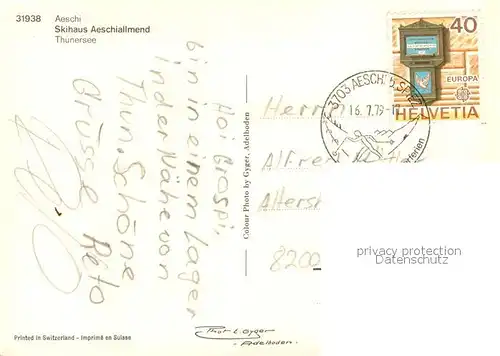 31938 Aeschi
Skihaus Aeschiallmend
Thunersee
Hoi Grospi,
bin in einem Lager
in der Nähe von
Thun. Schöne
Grüsse Reto
Colour Photo by Gyger, Adelboden
40
EUROPA
HELVETIA
3703 AESCHI B. SPIEZ
16.7.79
Herrn
Alfred
Altersh
8200
privacy protection
Datenschutz
Printed in Switzerland - Imprimé en Suisse
Thor E. Gyger
- Adelboden.